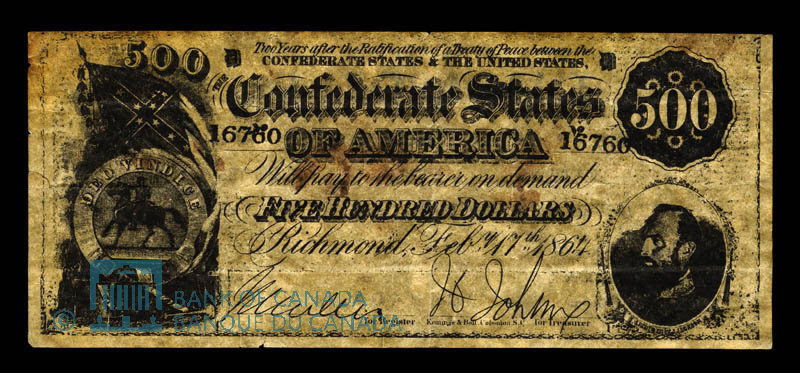 500
Two Years after the Ratification of a Treaty of Peace between the
CONFEDERATE STATES & THE UNITED STATES,
THE
Confederate States
500
16760
OF AMERICA
16760
DEO VINDICE
Will pay to the bearer on demand
FIVE HUNDRED DOLLARS
Richmond, Feby. 17th 1864
for Register
Keatinge & Ball, Columbia S.C.
for Treasurer
© BANK OF CANADA
BANQUE DU CANADA